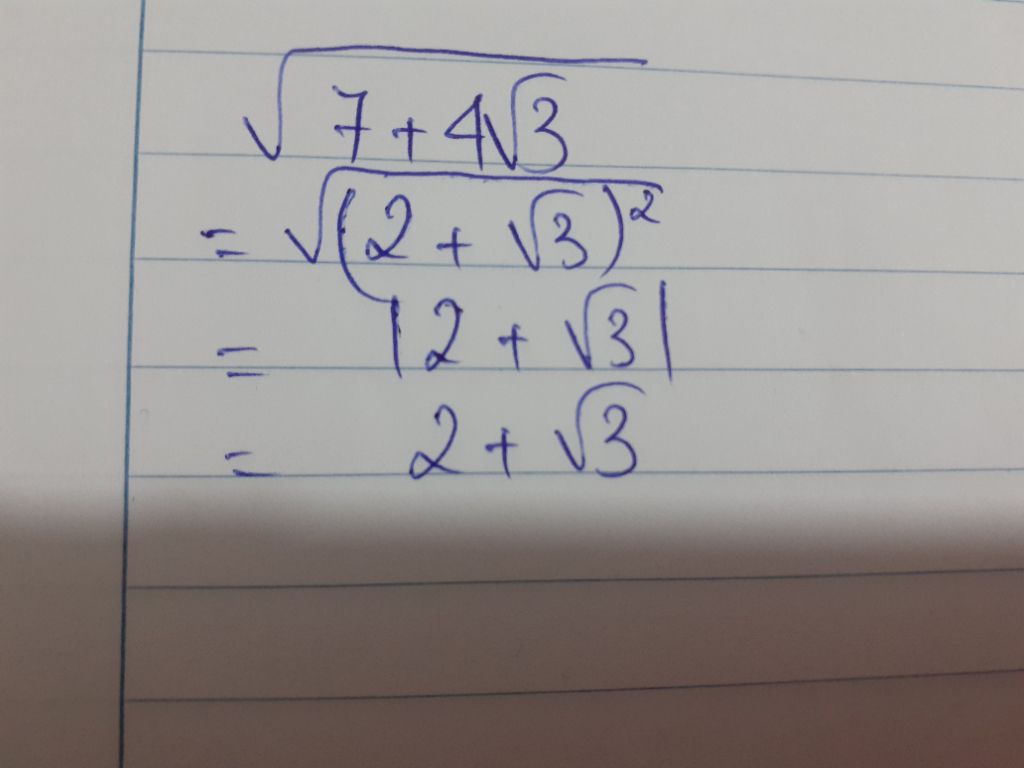 √(7 + 4√3)
= √((2 + √3)²)
= |2 + √3|
= 2 + √3